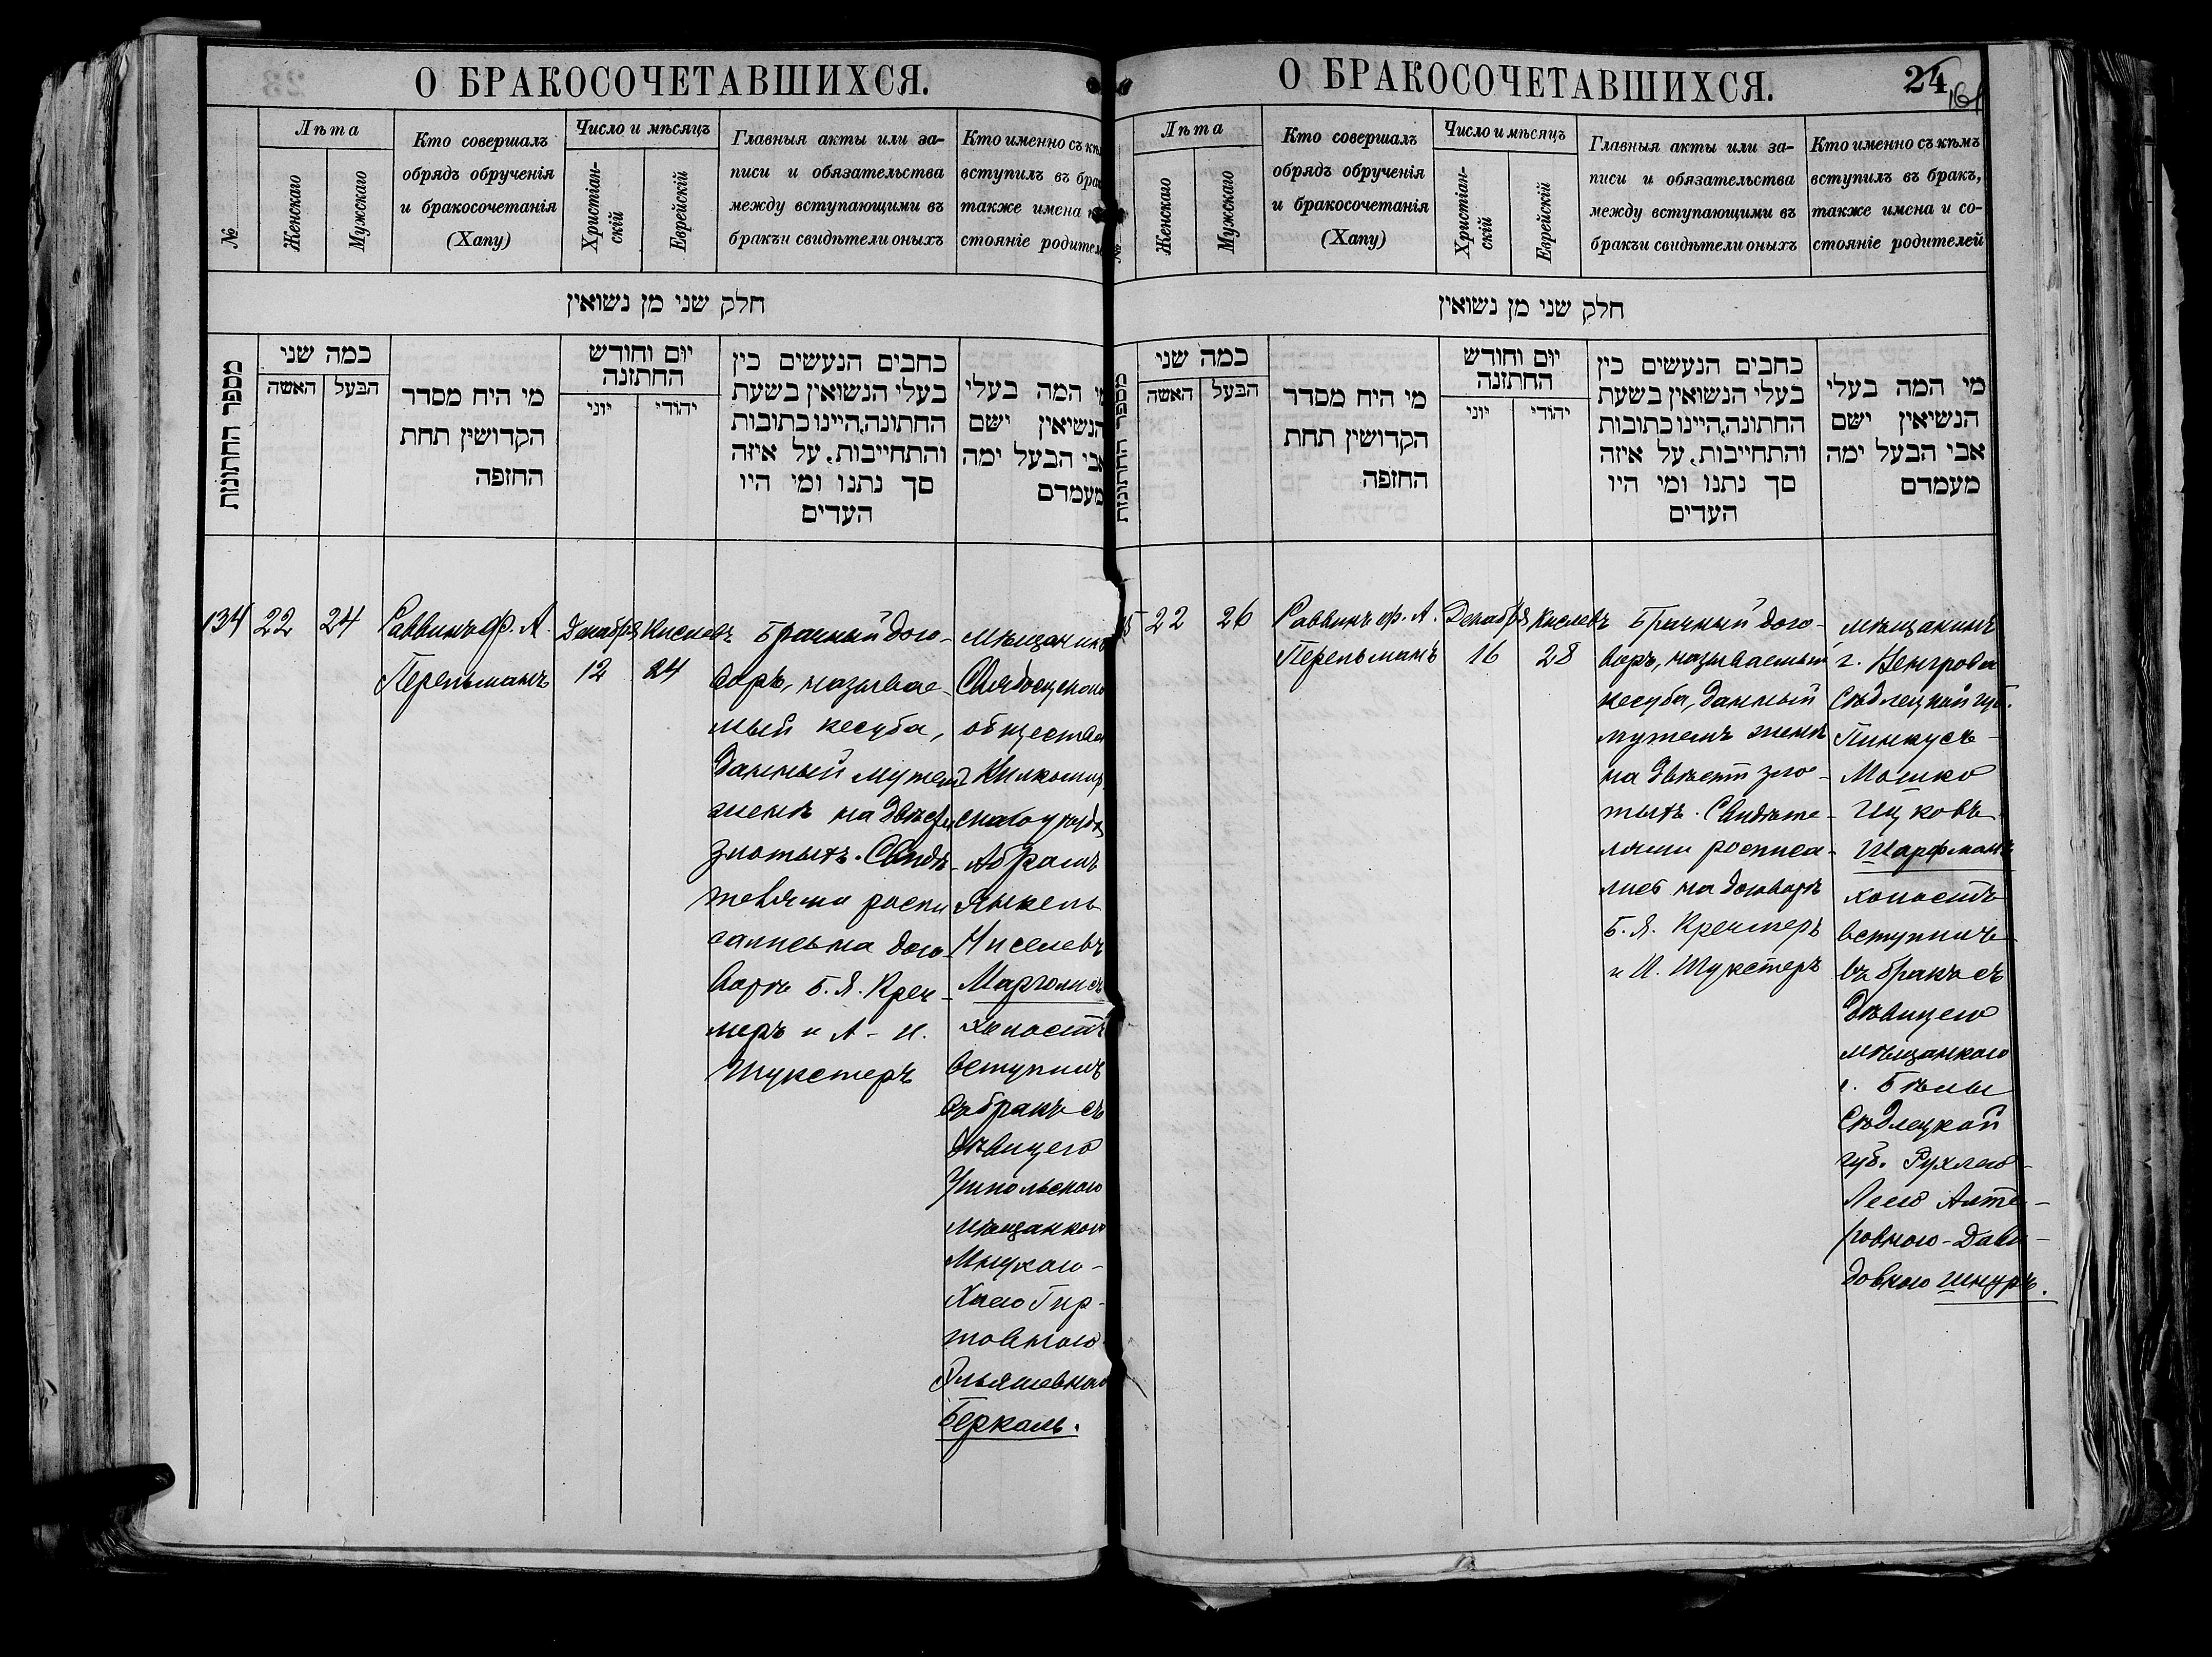 О БРАКОСОЧЕТАВШИХСЯ.
№
Лѣта
Женскаго
Мужскаго
Кто совершалъ
обрядъ обрученія
и бракосочетанія
(Хапу)
Число и мѣсяцъ
Христіан-
скій
Еврейскій
Главныя акты или за-
писи и обязательства
между вступающими въ
бракъ и свидѣтели оныхъ
Кто именно съ
вступилъ въ
также имена
стояніе
חלק שני מן נשואין
מספר החתונות
כמה שני
האשה
הבעל
מי היח מסדר
הקדושין תחת
החופה
יום וחודש
החתונה
יוני
יהודי
כתבים הנעשים בין
בעלי הנשואין בשעת
החתונה, היינו כתובות
והתחייבות, על איזה
סך נתנו ומי היו
העדים
מי המה בעלי
הנשיאין ישם
אבי הבעל ימה
מעמדם
134
22
24
Раввинъ Ф. А.
Перельманъ
Декабря
12
Кислевъ
24
Брачный дого-
воръ, называе-
мый кесуба,
данный мужемъ
женѣ на двѣсти
злотыхъ. Свидѣ-
телями роспи
сались на дого-
ворѣ Б. Я. Крен-
меръ и А - И.
Шукстеръ
Мѣщанинъ
общества
Вилкомир
скаго уѣзда
Абрамъ
Янкель
Марголисъ
холостъ
вступилъ
въ бракъ съ
дѣвицею
мѣщанкою
Мнухаю-
Хаею Гир-
товною
Беркаль.
О БРАКОСОЧЕТАВШИХСЯ.
24
161
Лѣта
Женскаго
Мужскаго
Кто совершалъ
обрядъ обрученія
и бракосочетанія
(Хапу)
Число и мѣсяцъ
Христіан-
скій
Еврейскій
Главныя акты или за-
писи и обязательства
между вступающими въ
бракъ и свидѣтели оныхъ
Кто именно съ кѣмъ
вступилъ въ бракъ,
также имена и со-
стояніе родителей
חלק שני מן נשואין
מספר החתונות
כמה שני
האשה
הבעל
מי היח מסדר
הקדושין תחת
החופה
יום וחודש
החתונה
יוני
יהודי
כתבים הנעשים בין
בעלי הנשואין בשעת
החתונה, היינו כתובות
והתחייבות, על איזה
סך נתנו ומי היו
העדים
מי המה בעלי
הנשיאין ישם
אבי הבעל ימה
מעמדם
22
26
Раввинъ Ф. А.
Перельманъ
Декабря
16
Кислевъ
28
Брачный дого-
воръ, называемый
кесуба, данный
мужемъ женѣ
на двѣсти зло-
тыхъ. Свидѣте-
лями росписа-
лись на договорѣ
Б. Я. Кренмеръ
и И. Шукстеръ
мѣщанинъ
г. Венгрова
Сѣдлецкой губ.
Пинкусъ-
Мошко
Ицковъ
Шарфманъ
холостъ
вступилъ
въ бракъ съ
дѣвицею
мѣщанкою
г. Бѣлы
Сѣдлецкой
губ. Рухлею-
Леею Алте-
ровною-Дави-
довною Шнуръ.